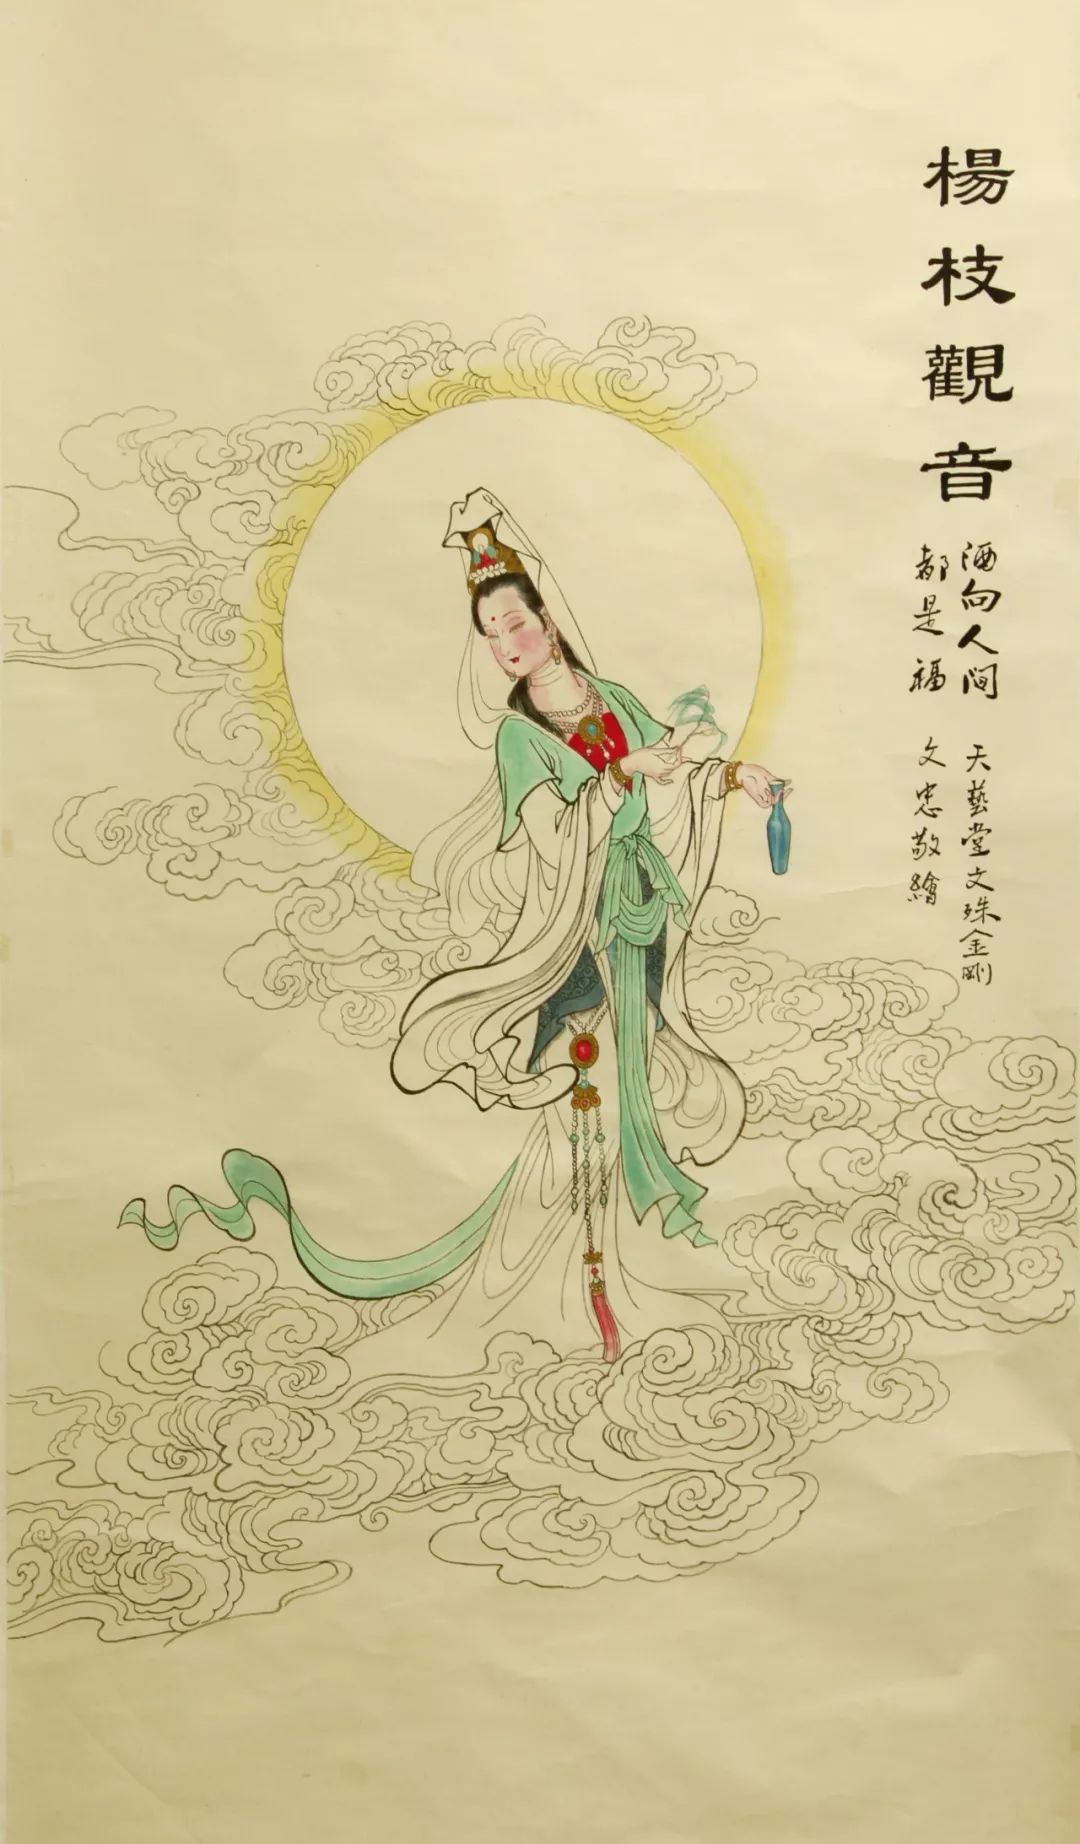 楊枝觀音
洒向人间
都是福
天藝堂文珠金剛
文忠敬繪